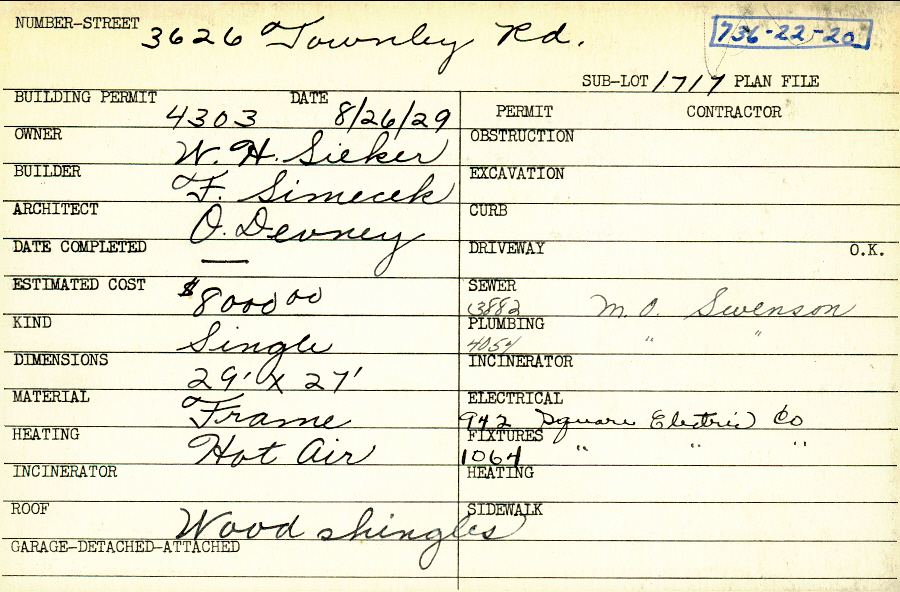 NUMBER-STREET 3626 Townley Rd.
736-22-20
SUB-LOT 1717 PLAN FILE
BUILDING PERMIT 4303 DATE 8/26/29
PERMIT CONTRACTOR
OWNER W. H. Sieker
OBSTRUCTION
BUILDER F. Simecek
EXCAVATION
ARCHITECT O. Devney
CURB
DATE COMPLETED —
DRIVEWAY O.K.
ESTIMATED COST $8000 00
SEWER 3882 M. O. Swenson
KIND Single
PLUMBING 4054 " "
DIMENSIONS 29' x 27'
INCINERATOR
MATERIAL Frame
ELECTRICAL 942 Square Electric Co
HEATING Hot Air
FIXTURES 1064 " " "
INCINERATOR
HEATING
ROOF Wood shingles
SIDEWALK
GARAGE-DETACHED-ATTACHED